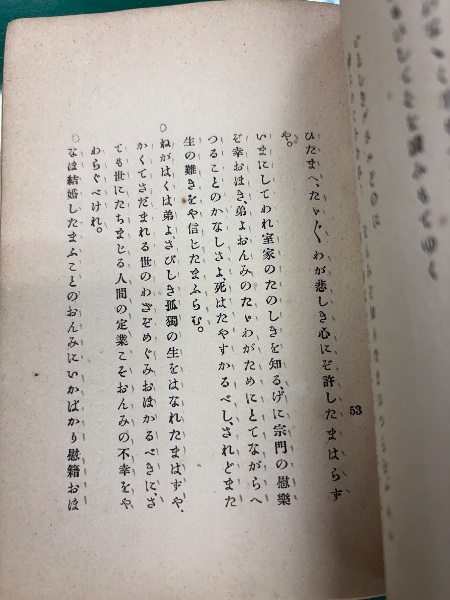 ひたまへ、たゞ〳〵わが悲しき心にぞ許したまはらず
や。
いまにしてわれ室家のたのしきを知る、げに宗門の慰樂
ぞ幸おほき、弟よおんみのたゞわがためにとてながらへ
つることのかなしさよ、死はたやすかるべし、されどまた
生の難きをや信じたまふらむ。
○ねがはくは弟よ、さびしき孤獨の生をはなれたまはずや、
かくてさだまれる世のわざぞめぐみおほかるべきに、さ
ても世にたちまじる人間の定業こそおんみの不幸をや
わらぐべけれ。
○なほ結婚したまふことのおんみにいかばかり慰籍おほ
53